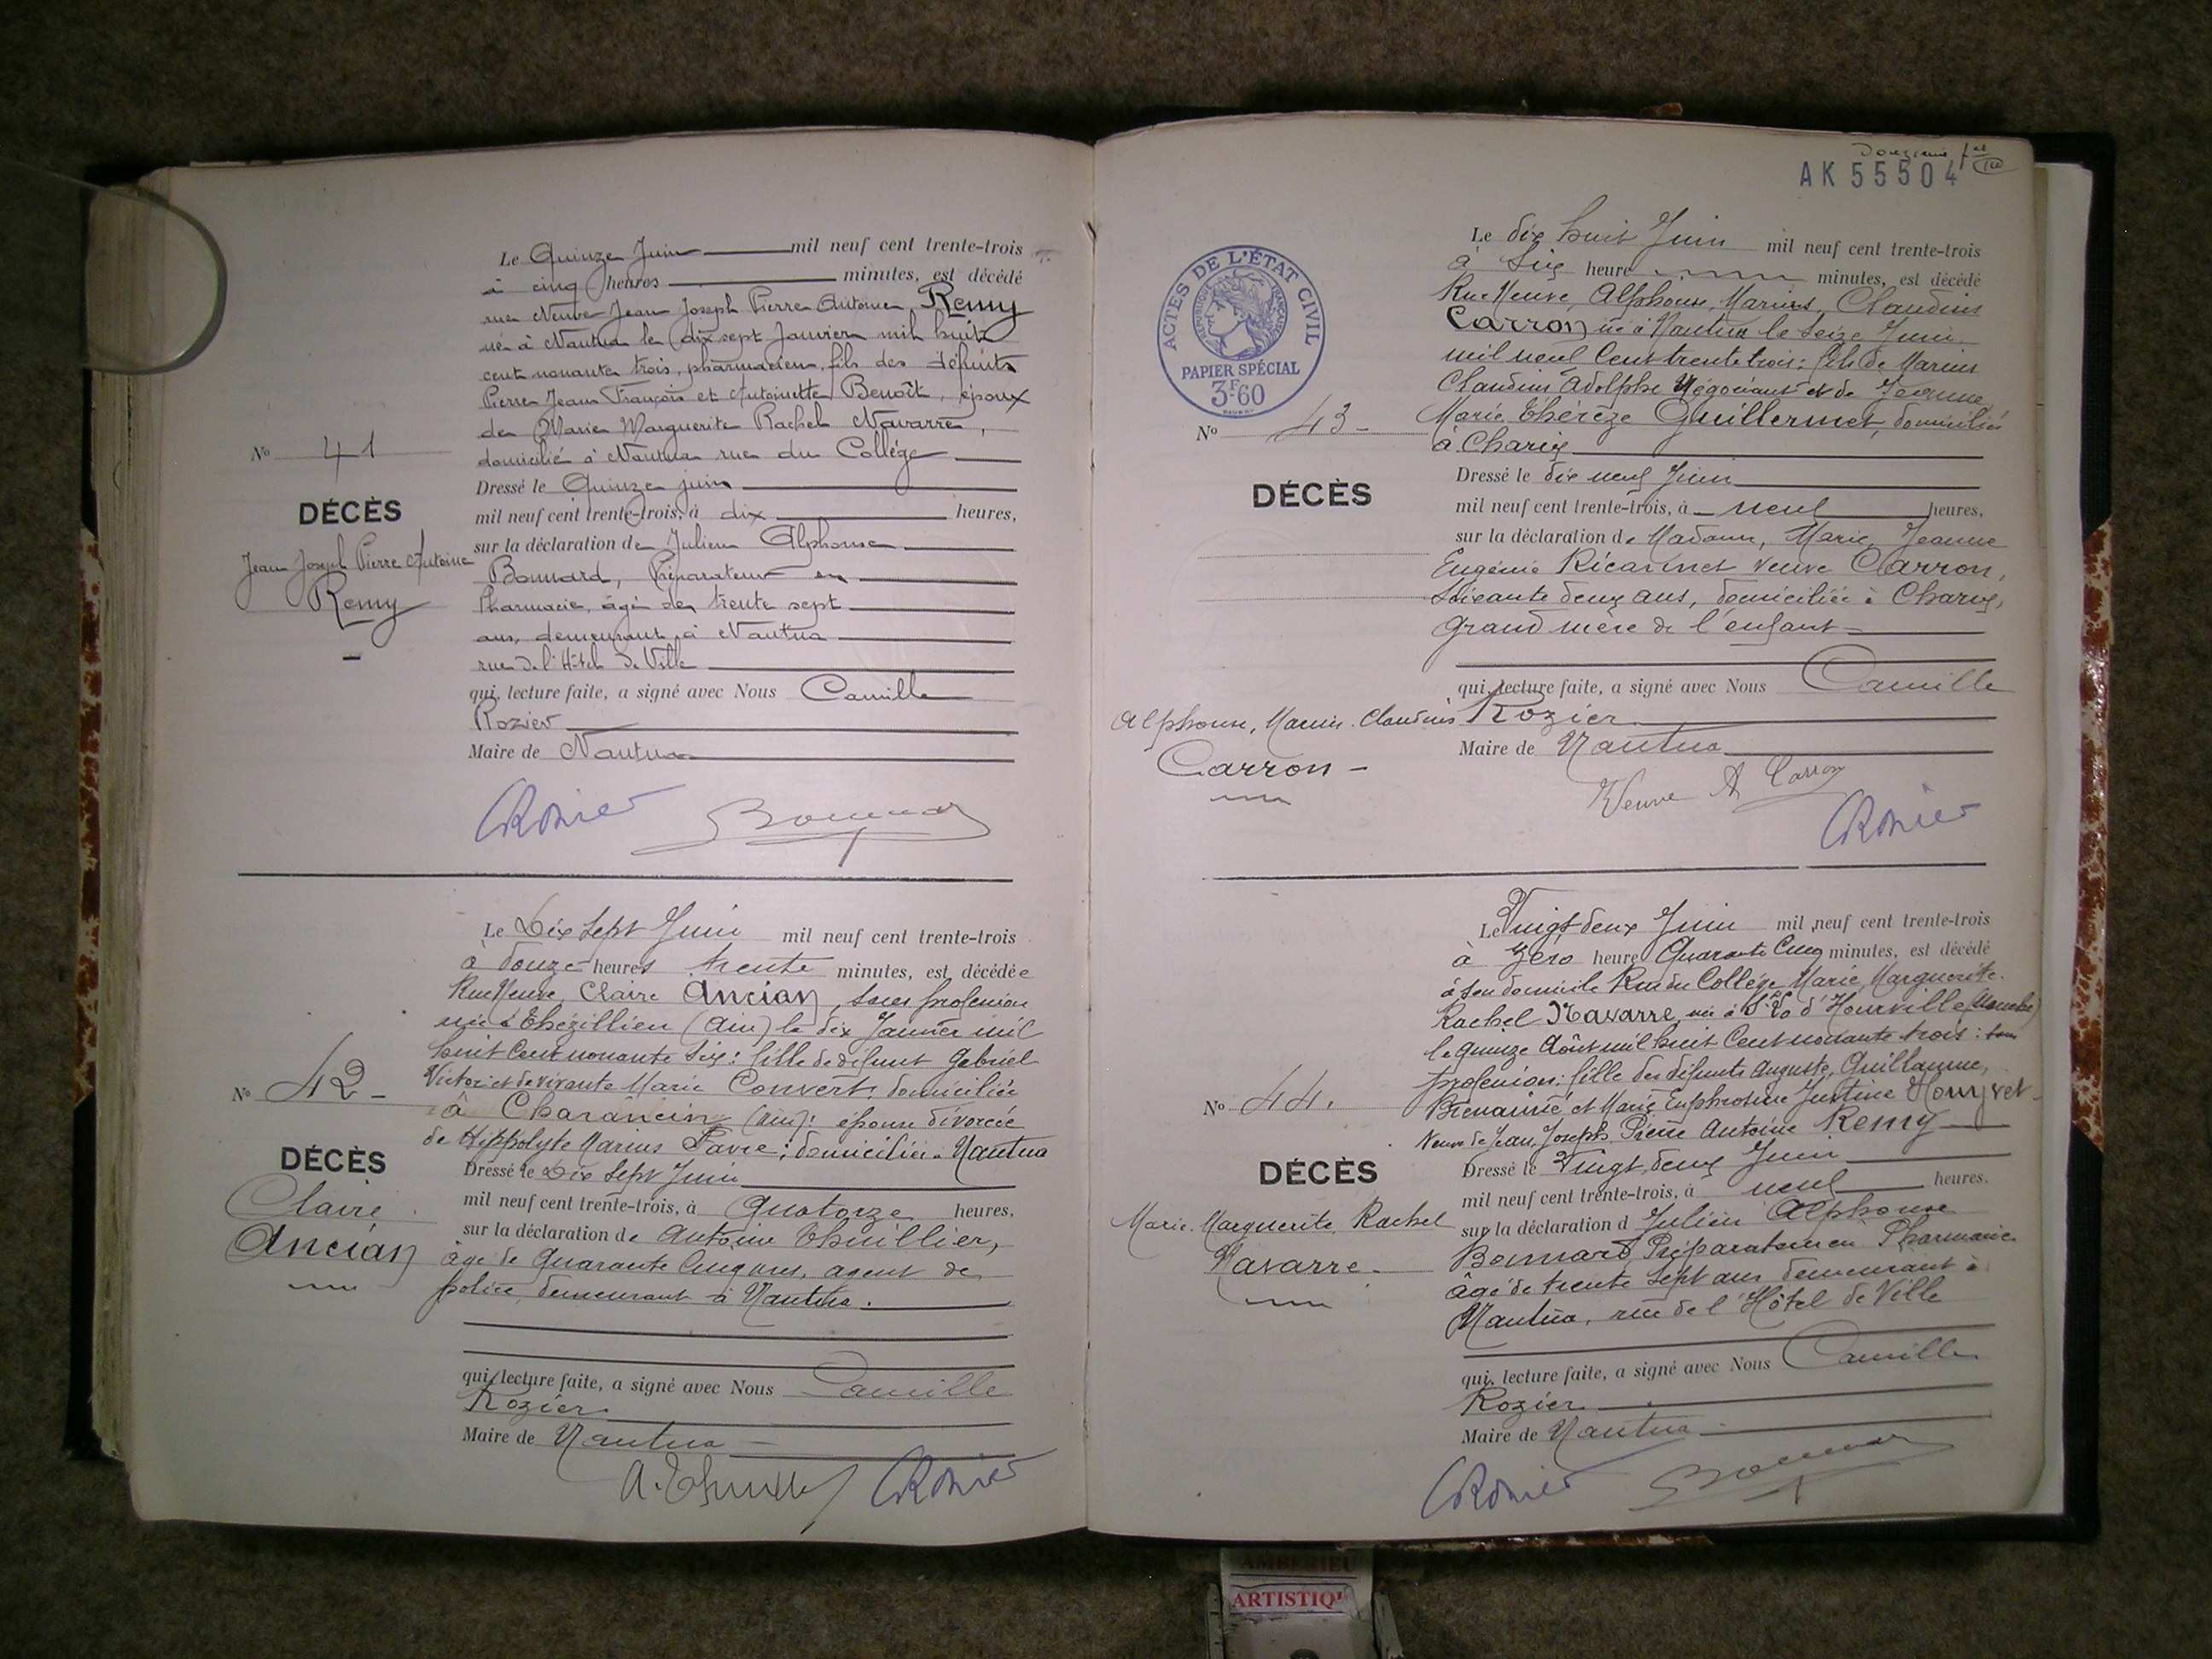 Le Quinze Juin mil neuf cent trente-trois
à cinq heures minutes, est décédé
rue Neuve Jean Joseph Pierre Antoine Remy
né à Nantua le dix sept Janvier mil huit
cent nonante trois, pharmacien, fils des défunts
Pierre Jean François et Antoinette Benoît, époux
de Marie Marguerite Rachel Navarre,
domicilié à Nantua rue du Collége
Nº 41
DÉCÈS
Jean Joseph Pierre Antoine
Remy
Dressé le Quinze juin
mil neuf cent trente-trois, à dix heures,
sur la déclaration de Julien Alphonse
Bonnard, Préparateur en
Pharmacie, âgé de trente sept
ans, demeurant à Nantua
rue de l'Hôtel de Ville
qui, lecture faite, a signé avec Nous Camille
Rozier
Maire de Nantua
CRozier Bonnard
Le Dix sept Juin mil neuf cent trente-trois
à douze heures trente minutes, est décédée
Rue Neuve, Claire Ancian, sans profession
née à Thézillieu (Ain) le dix Janvier mil
huit cent nonante six : fille de défunt Gabriel
Victor et de vivante Marie Convert, domiciliée
à Charancin (Ain) : épouse divorcée
de Hippolyte Marius Favre ; domiciliée à Nantua
Nº 42
DÉCÈS
Claire
Ancian
Dressé le Dix sept Juin
mil neuf cent trente-trois, à Quatorze heures,
sur la déclaration de Antoine Thuillier,
âgé de Quarante Cinq ans, agent de
police, demeurant à Nantua.
qui, lecture faite, a signé avec Nous Camille
Rozier
Maire de Nantua
A. Thuillier CRozier
AK 55504
ACTES DE L'ÉTAT CIVIL
RÉPUBLIQUE FRANÇAISE
PAPIER SPÉCIAL
3F60
Le dix huit Juin mil neuf cent trente-trois
à Six heure minutes, est décédé
Rue Neuve, Alphonse, Marius, Claudius
Carron né à Nantua le Seize Juin
mil neuf Cent trente trois : fils de Marius
Claudius Adolphe Négociant et de Jeanne
Marie Thérèze Guillermet, domiciliés
à Charix
Nº 43
DÉCÈS
Alphonse, Marius. Claudius
Carron
Dressé le dix neuf Juin
mil neuf cent trente-trois, à neuf heures,
sur la déclaration de Madame, Marie, Jeanne
Eugénie Ricarinet Veuve Carron,
Soixante deux ans, domiciliée à Charix,
Grand mère de l'enfant
qui, lecture faite, a signé avec Nous Camille
Rozier
Maire de Nantua
Veuve A Carron
CRozier
Le Vingt deux Juin mil neuf cent trente-trois
à Zéro heure Quarante Cinq minutes, est décédé
à son domicile Rue du Collége Marie, Marguerite
Rachel Navarre, née à St Lo d'Hourville (Manche)
le Quinze Août mil huit Cent nonante trois : sans
profession : fille des défunts Auguste, Guillaume,
Bienaimé et Marie Euphrosine Justine
Veuve de Jean, Joseph, Pierre Antoine Remy
Nº 44.
DÉCÈS
Marie. Marguerite. Rachel
Navarre
Dressé le Vingt deux Juin
mil neuf cent trente-trois, à neuf heures.
sur la déclaration d Julien Alphonse
Bonnard, Préparateur en Pharmacie
âgé de trente sept ans demeurant à
Nantua, rue de l'Hôtel de Ville
qui, lecture faite, a signé avec Nous Camille
Rozier
Maire de Nantua
CRozier Bonnard
AMBERIEU
ARTISTIQU